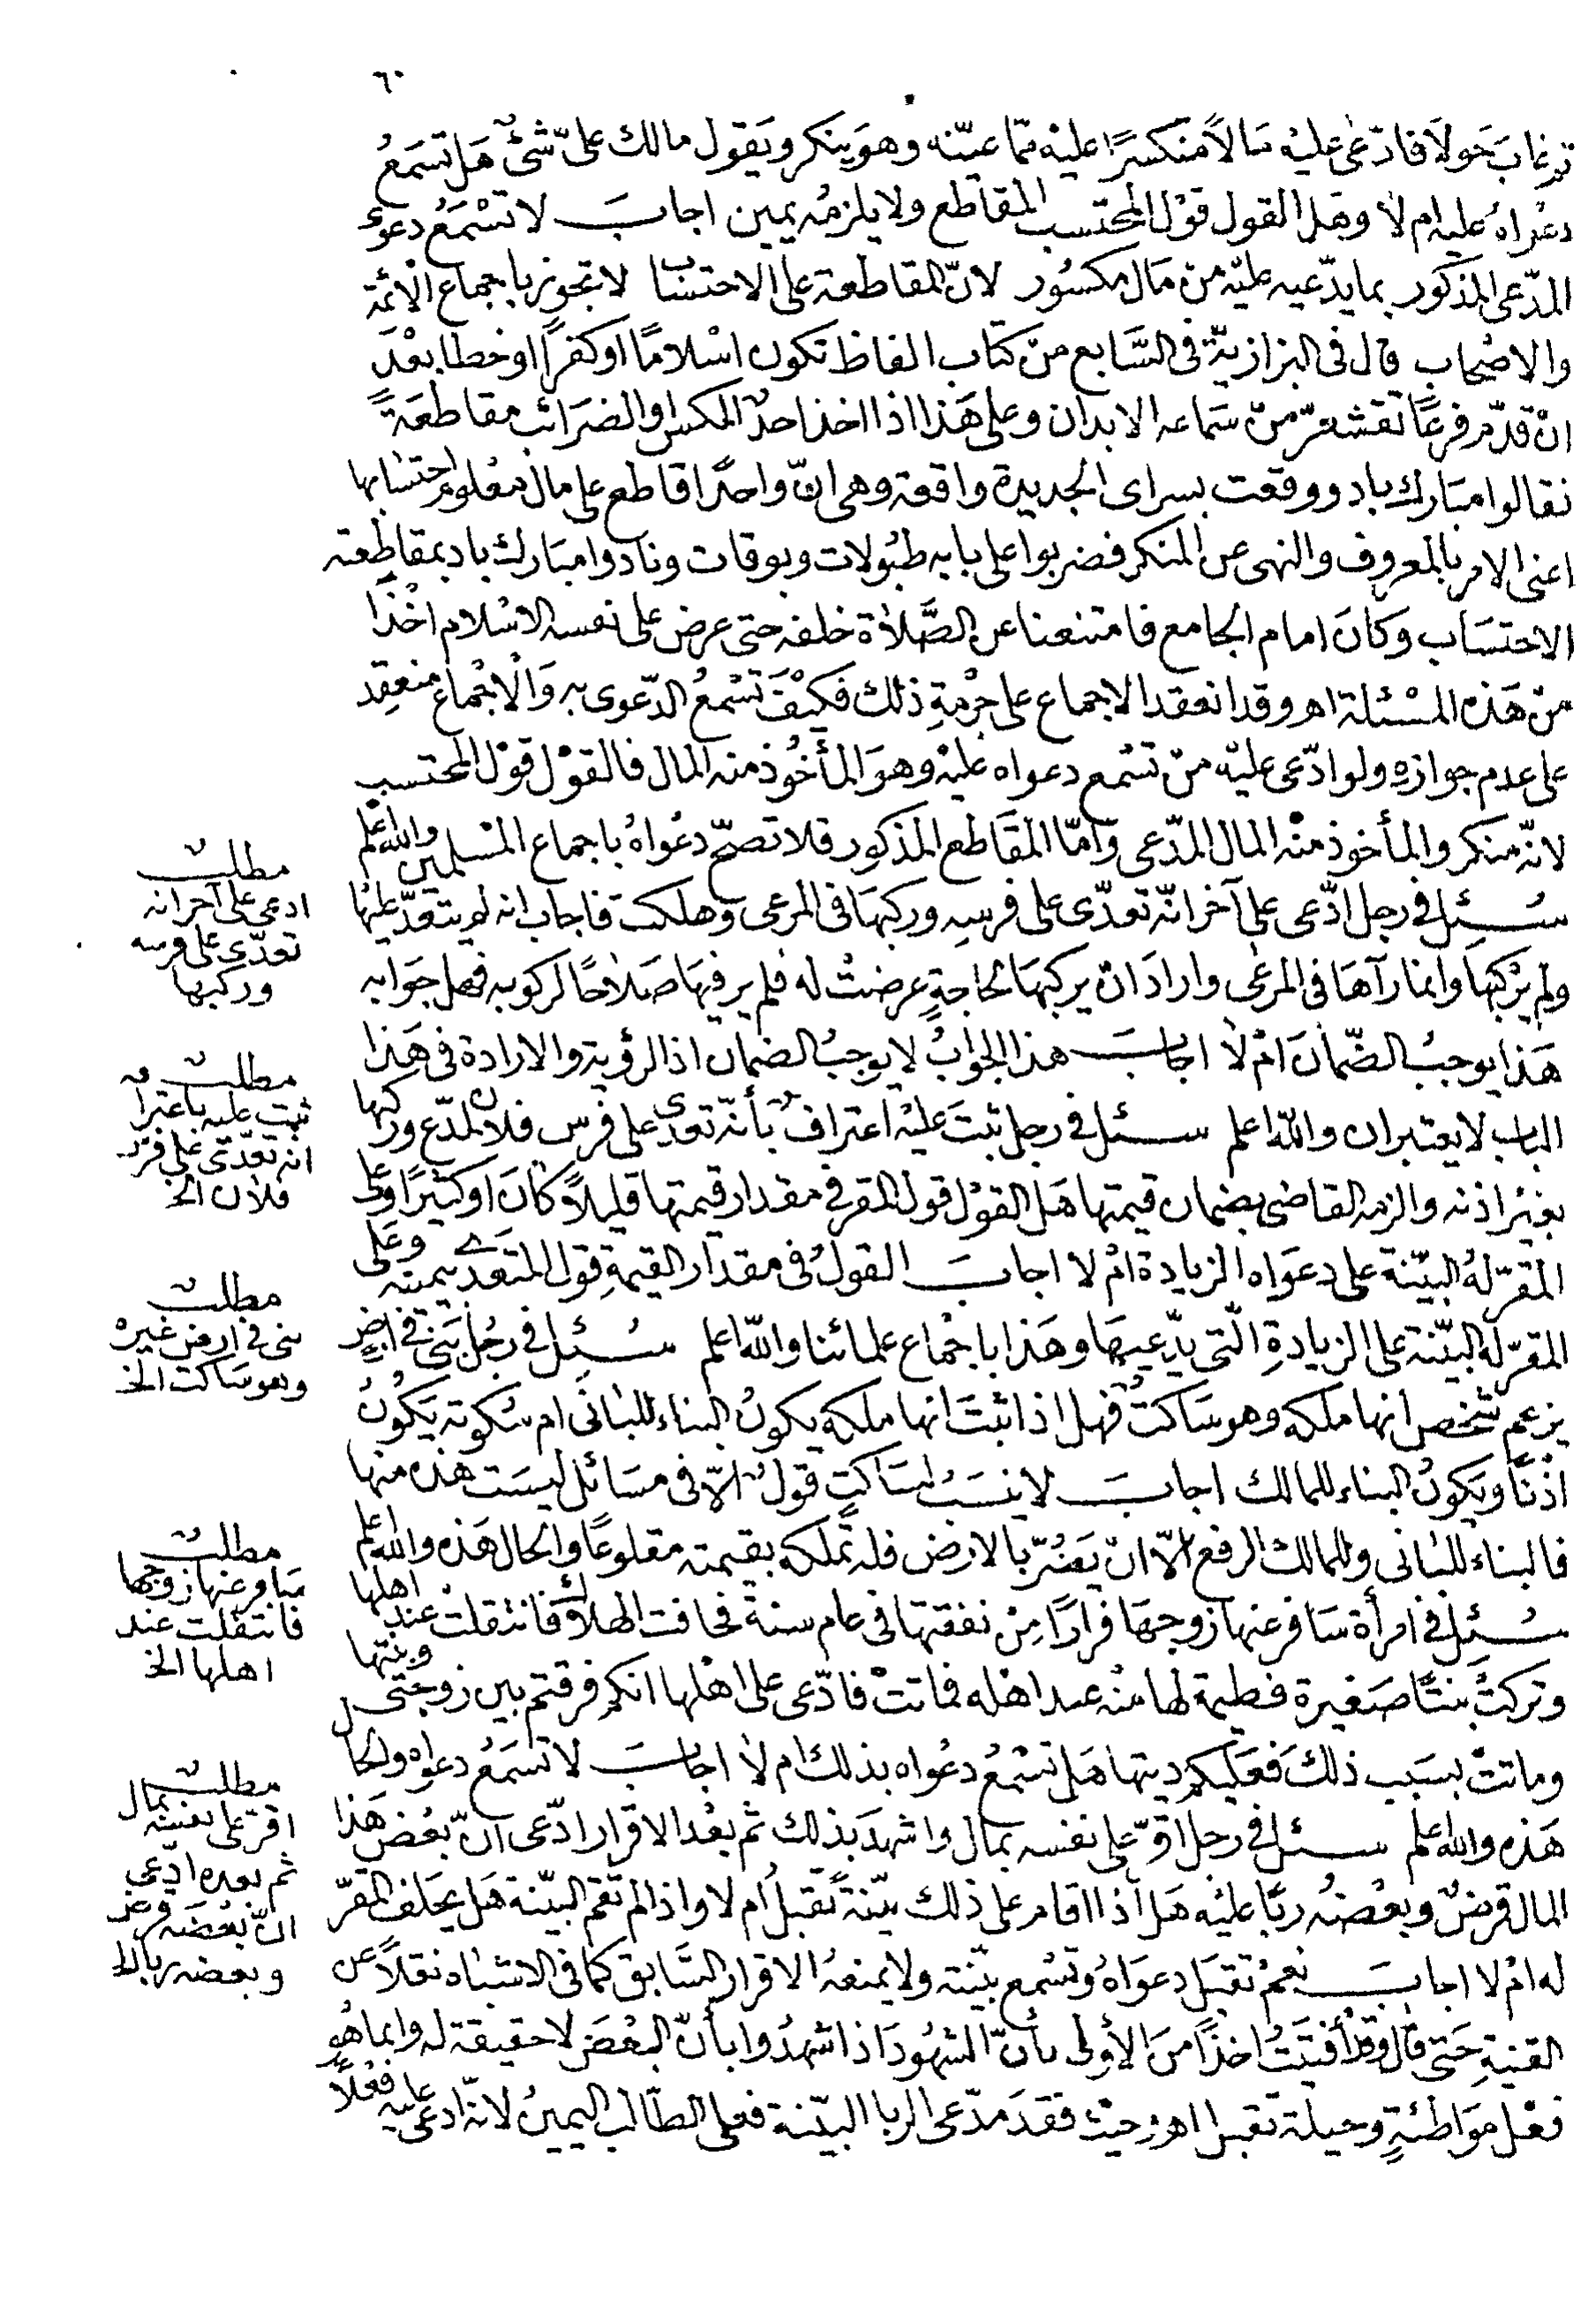 ٦٠
قد غاب حولا فادّعى عليه مالاً منكسرًا عليه ممّا عيّنه وهو ينكر ويقول مالك علىّ شئ هل تسمعُ
دعْواهُ عليه ام لا وهل القول قوْل المحتسب المقاطع ولا يلزمه يمين اجابَ لا تسْمَعُ دعوى
المدّعى المذكور بما يدّعيه عليْه منْ مَال مكسُور لانّ المقاطعة على الاحتساب لا تجوز باجماع الائمّة
والاصْحاب قال فى البزازيّة فى السَّابع منْ كتاب الفاظ تكون اسْلامًا او كفرًا او خطا بعْدَ
انْ قدّم فرعًا تقشعرّ منْ سَماعه الابدان وعلى هَذا اذا اخذ احدٌ المكس او الضرَائب مقاطعَةً
فقالوا مبَارك باد ووقعت بسراى الجديدة واقعة وهى انّ واحدًا قاطع على مال معْلوم احتسَابها
اعنى الامر بالمعروف والنهى عن المنكر فضربوا على بابه طبُولات وبوقات ونادوا مبَارك باد بمقاطعة
الاحتسَاب وكانَ امام الجامع فامتنعنا عن الصَّلاة خلفه حتى عرض على نفسه الاسْلام اخْذًا
منْ هَذه المسْئلة اهـ وقد انعقد الاجماع على حُرْمةِ ذلك فكيْفَ تسْمعُ الدّعوى به وَالْاجْماع منعقِد
على عدم جوازهِ ولو ادّعى عليْه منْ تسْمع دعواه عليْه وهوَ المأخُوذ منه المال فالقوْل قوْل المحتسب
لانّه منكر والمأخوذ منْه المال المدّعى وَامّا المقَاطع المذكور فلا تصحّ دعْواهُ باجماع المسْلمين والله اعلم
سُئِل فى رجل ادّعى على آخر انّه تعدّى على فرسِه وركبهَا فى المرعى وهلكت فاجاب انه لم يتعدّ عليْها
ولم يرْكبها وانما رآهَا فى المرعى وارادَ انْ يركبهَا لحاجةٍ عرضتْ له فلم ير فيهَا صَلاحًا لركوبه فهل جوَابه
هَذا يوجبُ الضّمانَ امْ لا اجابَ هذا الجوابُ لا يوجبُ الضمان اذ الرؤية والارادة فى هَذا
الباب لا يعتبران والله اعلم سئل فى رجل ثبتَ عليْه اعترافٌ بأنّه تعدى على فرس فلان المدّعى وركبها
بغيْر اذنه والزمه القاضى بضمان قيمتها هَل القوْل قول المقر فى مقدار قيمتها قليلاً كانَ او كثيرًا وعلى
المقرّ لهُ البيّنة على دعوَاه الزيادة امْ لا اجابَ القولُ فى مقدَار القيمةِ قول المتعدى بيمينه وعَلى
المقرّ له البيّنة على الزيادةِ الّتى يدّعيهَا وهَذا باجْماع علمائنا والله اعلم سُئِل فى رجُل بَنى فى ارْضٍ
يزعم شخص انها ملكه وهو سَاكتٌ فهل اذا ثبتَ انها ملكه يكونُ البناء للبانى ام سُكوته يَكُونُ
اذْنًا ويَكونُ البناء للمالك اجابَ لا ينسَبُ لسَاكتٍ قولٌ الّا فى مسَائل ليسَت هَذه منها
فالبناء للبانى وللمالك الرفع الّا انْ يَضُرّ بالارض فله تملكه بقيمته مقلوعًا والحال هَذه والله اعلم
سُئِل فى امرأة سَافر عنها زوجهَا فرارًا مِنْ نفقتها فى عام سنة فخافت الهلاك فانتقلتْ عند اهلها
وتركتْ بنتًا صَغيرة فطيمة لها منْه عند اهْله فماتتْ فادّعى على اهْلها انكم فرقتم بين زوجتى وبنتها
وماتتْ بسَبب ذلكَ فعَليكم ديتها هَل تسْمعُ دعْواه بذلك ام لا اجابَ لا تسْمَعُ دعواه والحال
هَذه والله اعلم سئل فى رجل اقرّ على نفسه بمال واشهدَ بذلك ثم بعْد الاقرار ادّعى انّ بعْض هَذا
المال قرضٌ وبعْضهُ ربًا عليْه هَل اذا اقام على ذلك بيّنةً تقْبلُ ام لا واذا لم تقم البيّنة هَل يحلف المقرّ
له امْ لا اجابَ نعمْ تقبَل دعوَاهُ وتسْمع بيّنته ولا يمنعهُ الاقرار السَّابق كما فى الاشبَاه نقلاً عن
القنيةِ حَتى قال وقدْ أفتيَتُ اخذًا منَ الأولى بأنّ الشهُودَ اذا شهدُوا بأنّ البعْضَ لا حقيقة له وانما هُو
فعْل موَاطئةٍ وحيلة تقبل اهـ وحيْث فقدَ مدّعى الربا البيّنة فعلى الطّالب اليمينُ لانّه ادعى عليه فعْلاً
مطلب
ادعى على آخر انه
تعدّى على فرسه
وركبها
مطلب
ثبت عليه باعترافه
انه تعدّى على فرس
فلان الخ
مطلب
بنى فى ارض غيرهْ
وهو سَاكت الخ
مطلب
سَافر عنها زوجها
فانتقلت عند
اهلها الخ
مطلب
اقر على نفسه بمال
ثم بعده ادّعى
انّ بعْضَه قرض
وبعضه ربا الخ